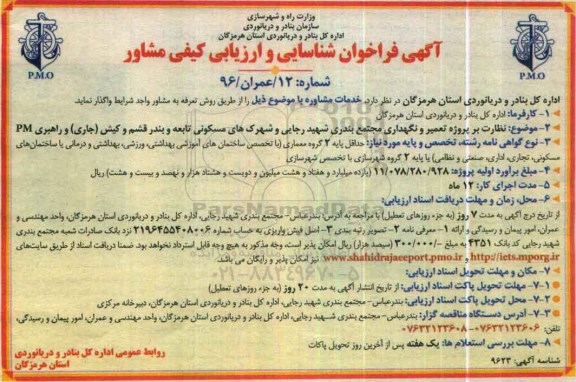 وزارت راه و شهرسازی
سازمان بنادر و دریانوردی
اداره کل بنادر و دریانوردی استان هرمزگان
آگهی فراخوان شناسایی و ارزیابی کیفی مشاور
شماره: ۱۲/عمران/۹۶
P.M.O
P.M.O
اداره کل بنادر و دریانوردی استان هرمزگان در نظر دارد، خدمات مشاوره با موضوع ذیل را از طریق روش تعرفه به مشاور واجد شرایط واگذار نماید.
۱- کارفرما: اداره کل بنادر و دریانوردی استان هرمزگان
۲- موضوع: نظارت بر پروژه تعمیر و نگهداری مجتمع بندری شهید رجایی و شهرک های مسکونی تابعه و بندر قشم و کیش (جاری) و راهبری PM
۳- نوع گواهی نامه رشته، تخصص و پایه مورد نیاز: حداقل پایه ۲ گروه معماری (با تخصص ساختمان های آموزشی بهداشتی، ورزشی، بهداشتی و درمانی یا ساختمان‌های
مسکونی، تجاری، اداری، صنعتی و نظامی) یا پایه ۲ گروه شهرسازی با تخصص شهرسازی
۴- مبلغ برآورد اولیه پروژه: ۱۱/۰۷۸/۲۸۰/۹۲۸ (یازده میلیارد و هفتاد و هشت میلیون و دویست و هشتاد هزار و نهصد و بیست و هشت) ریال
۵- مدت اجرای کار: ۱۲ ماه
۶- محل، زمان و مهلت دریافت اسناد ارزیابی:
از تاریخ درج آگهی به مدت ۷ روز (به جزء روزهای تعطیل) با مراجعه به آدرس: بندرعباس- مجتمع بندری شهید رجایی، اداره کل بنادر و دریانوردی استان هرمزگان، واحد مهندسی و
عمران، امور پیمان و رسیدگی و ارائه ۱- معرفی نامه ۲- تصویر رتبه بندی ۳- اصل فیش واریزی به حساب شماره ۲۱۹۶۴۵۵۴۰۸۰۰۶ نزد بانک صادرات شعبه مجتمع بندری
شهید رجایی کد بانک ۴۳۵۱ به مبلغ -/۳۰۰/۰۰۰ (سیصد هزار) ریال امکان پذیر است، وجه مذکور به هیچ وجه قابل استرداد نخواهد بود. ضمنا دریافت اسناد از طریق سایت‌های
http://iets.mporg.ir و www.shahidrajaeeport.pmo.ir نیز امکان پذیر و رایگان می باشد.
۷- مکان و مهلت تحویل اسناد ارزیابی:
۷-۱- مهلت تحویل پاکت اسناد ارزیابی: از تاریخ انتشار آگهی به مدت ۲۰ روز (به جزء روزهای تعطیل)
۷-۲- محل تحویل پاکت اسناد ارزیابی: بندرعباس- مجتمع بندری شهید رجایی، اداره کل بنادر و دریانوردی استان هرمزگان، دبیرخانه مرکزی
۷-۳- آدرس دستگاه مناقصه گزار: بندرعباس- مجتمع بندری شهید رجایی، اداره کل بنادر و دریانوردی استان هرمزگان، واحد مهندسی و عمران، امور پیمان و رسیدگی،
تلفن: ۰۷۶۳۲۱۲۳۶۰۶-۰۷۶۳۲۱۲۳۶۰۸
۸- مهلت بررسی استعلام ها: یک هفته پس از آخرین روز تحویل پاکات
شناسه آگهی: ۹۶۲۳
روابط عمومی اداره کل بنادر و دریانوردی
استان هرمزگان
ParsNamadData
۰۲۱-۸۸۳۴۹۶۷۰-۵